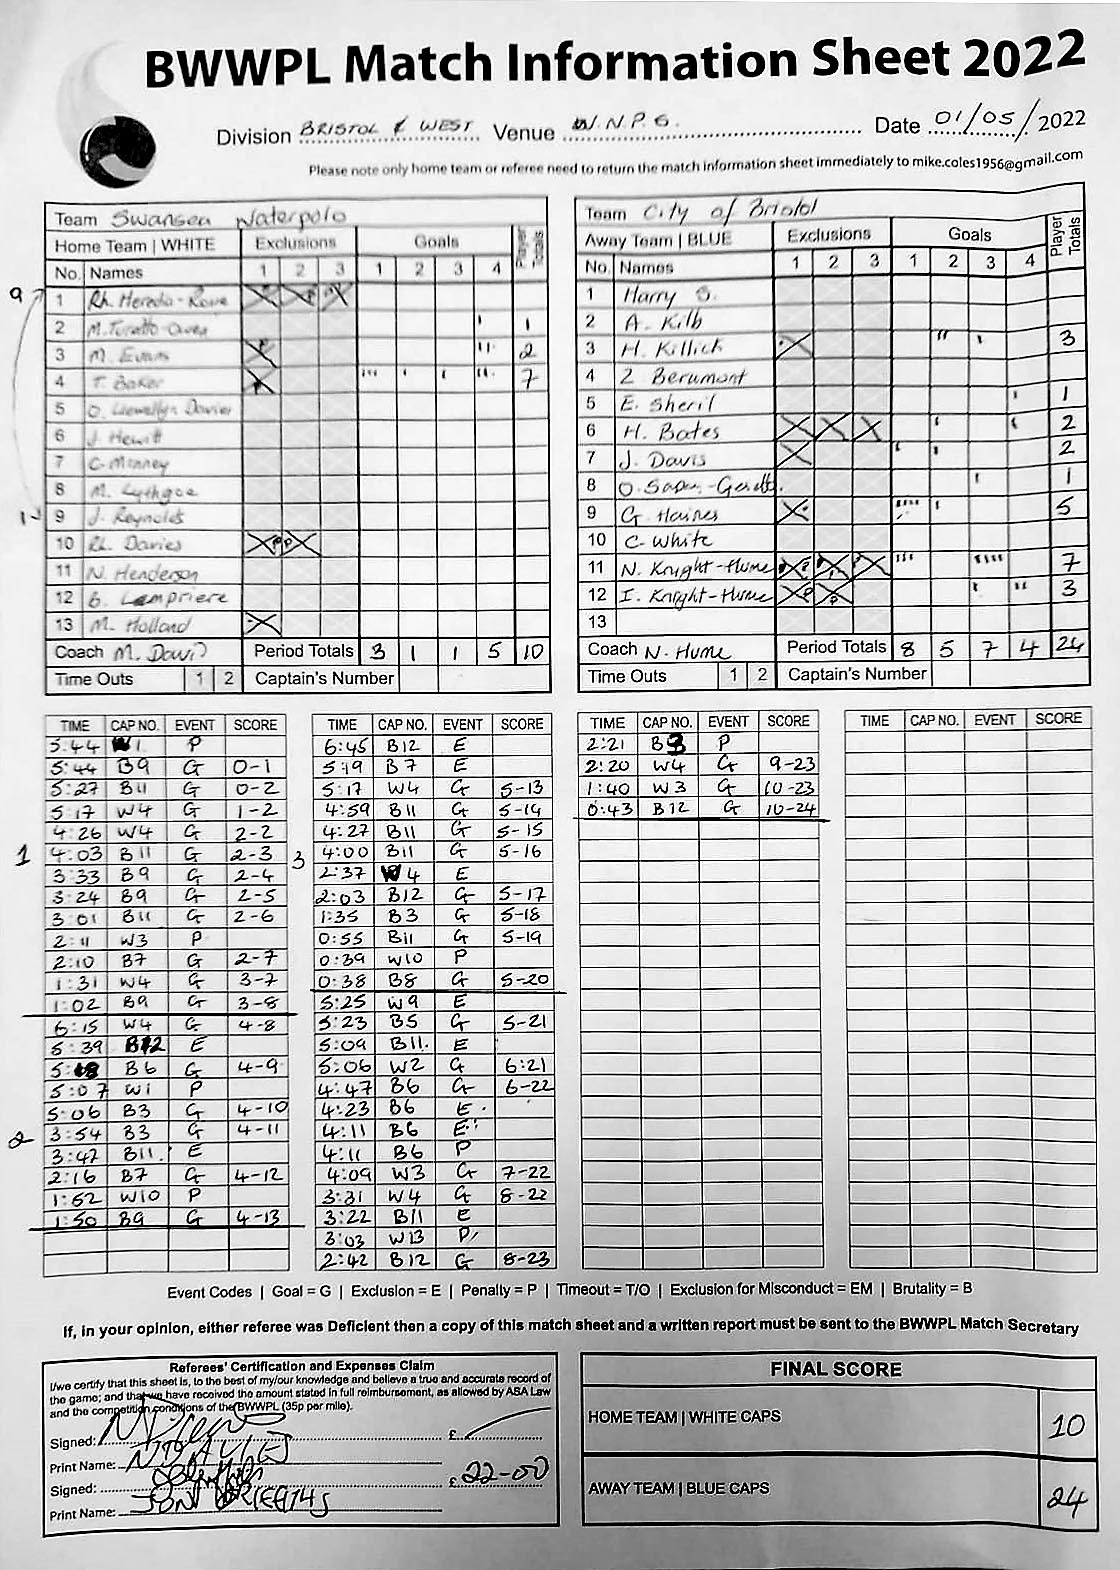 BWWPL Match Information Sheet 2022
Division BRISTOL & WEST Venue W.N.P.S. Date 01/05/2022
Please note only home team or referee need to return the match information sheet immediately to mike.coles1956@gmail.com
Team Swansea Waterpolo
Home Team | WHITE Exclusions Goals Player Totals
No. Names 1 2 3 1 2 3 4
9
1 Rh. Heredia-Rowe X X X
2 M. Turatto-Owen ' 1
3 M. Evans X '' 2
4 T. Baker X ''' ' ' '' 7
5 O. Llewellyn Davies
6 J. Hewitt
7 C. Minney
8 M. Lythgoe
1 9 J. Reynolds
10 Rh. Davies X P X P
11 N. Henderson
12 G. Lempriere
13 M. Holland X
Coach M. David Period Totals 3 1 1 5 10
Time Outs 1 2 Captain's Number
Team City of Bristol
Away Team | BLUE Exclusions Goals Player Totals
No. Names 1 2 3 1 2 3 4
1 Harry S.
2 A. Kilb
3 H. Killick X '' ' 3
4 Z Berumont
5 E. Sheril ' 1
6 H. Bates X X X ' ' 2
7 J. Davis X ' ' 2
8 O. ' 1
9 G. Haines X '''' ' 5
10 C. White
11 N. Knight-Hume X X X ''' '''' 7
12 I. Knight-Hume X X ' '' 3
13
Coach N. Hume Period Totals 8 5 7 4 24
Time Outs 1 2 Captain's Number
TIME CAP NO. EVENT SCORE
1
5:44 W1 P
5:44 B9 G 0-1
5:27 B11 G 0-2
5:17 W4 G 1-2
4:26 W4 G 2-2
4:03 B11 G 2-3
3:33 B9 G 2-4
3:24 B9 G 2-5
3:01 B11 G 2-6
2:11 W3 P
2:10 B7 G 2-7
1:31 W4 G 3-7
1:02 B9 G 3-8
2
6:15 W4 G 4-8
5:39 B12 E
B6 G 4-9
5:07 W1 P
5:06 B3 G 4-10
3:54 B3 G 4-11
3:47 B11. E
2:16 B7 G 4-12
1:52 W10 P
1:50 B9 G 4-13
TIME CAP NO. EVENT SCORE
3
6:45 B12 E
5:19 B7 E
5:17 W4 G 5-13
4:59 B11 G 5-14
4:27 B11 G 5-15
4:00 B11 G 5-16
2:37 W4 E
2:03 B12 G 5-17
1:35 B3 G 5-18
0:55 B11 G 5-19
0:39 W10 P
0:38 B8 G 5-20
5:25 W9 E
5:23 B5 G 5-21
5:09 B11. E
5:06 W2 G 6:21
4:47 B6 G 6-22
4:23 B6 E
4:11 B6 E
4:11 B6 P
4:09 W3 G 7-22
3:31 W4 G 8-22
3:22 B11 E
3:03 W13 P
2:42 B12 G 8-23
TIME CAP NO. EVENT SCORE
2:21 B3 P
2:20 W4 G 9-23
1:40 W3 G 10-23
0:43 B12 G 10-24
TIME CAP NO. EVENT SCORE
Event Codes | Goal = G | Exclusion = E | Penalty = P | Timeout = T/O | Exclusion for Misconduct = EM | Brutality = B
If, in your opinion, either referee was Deficient then a copy of this match sheet and a written report must be sent to the BWWPL Match Secretary
Referees' Certification and Expenses Claim
I/we certify that this sheet is, to the best of my/our knowledge and believe a true and accurate record of
the game; and that we have received the amount stated in full reimbursement, as allowed by ASA Law
and the competition conditions of the BWWPL (35p per mile).
Signed: £
Print Name: N DAVIES
Signed: £ 22-00
Print Name: JON GRIFFITHS
FINAL SCORE
HOME TEAM | WHITE CAPS 10
AWAY TEAM | BLUE CAPS 24